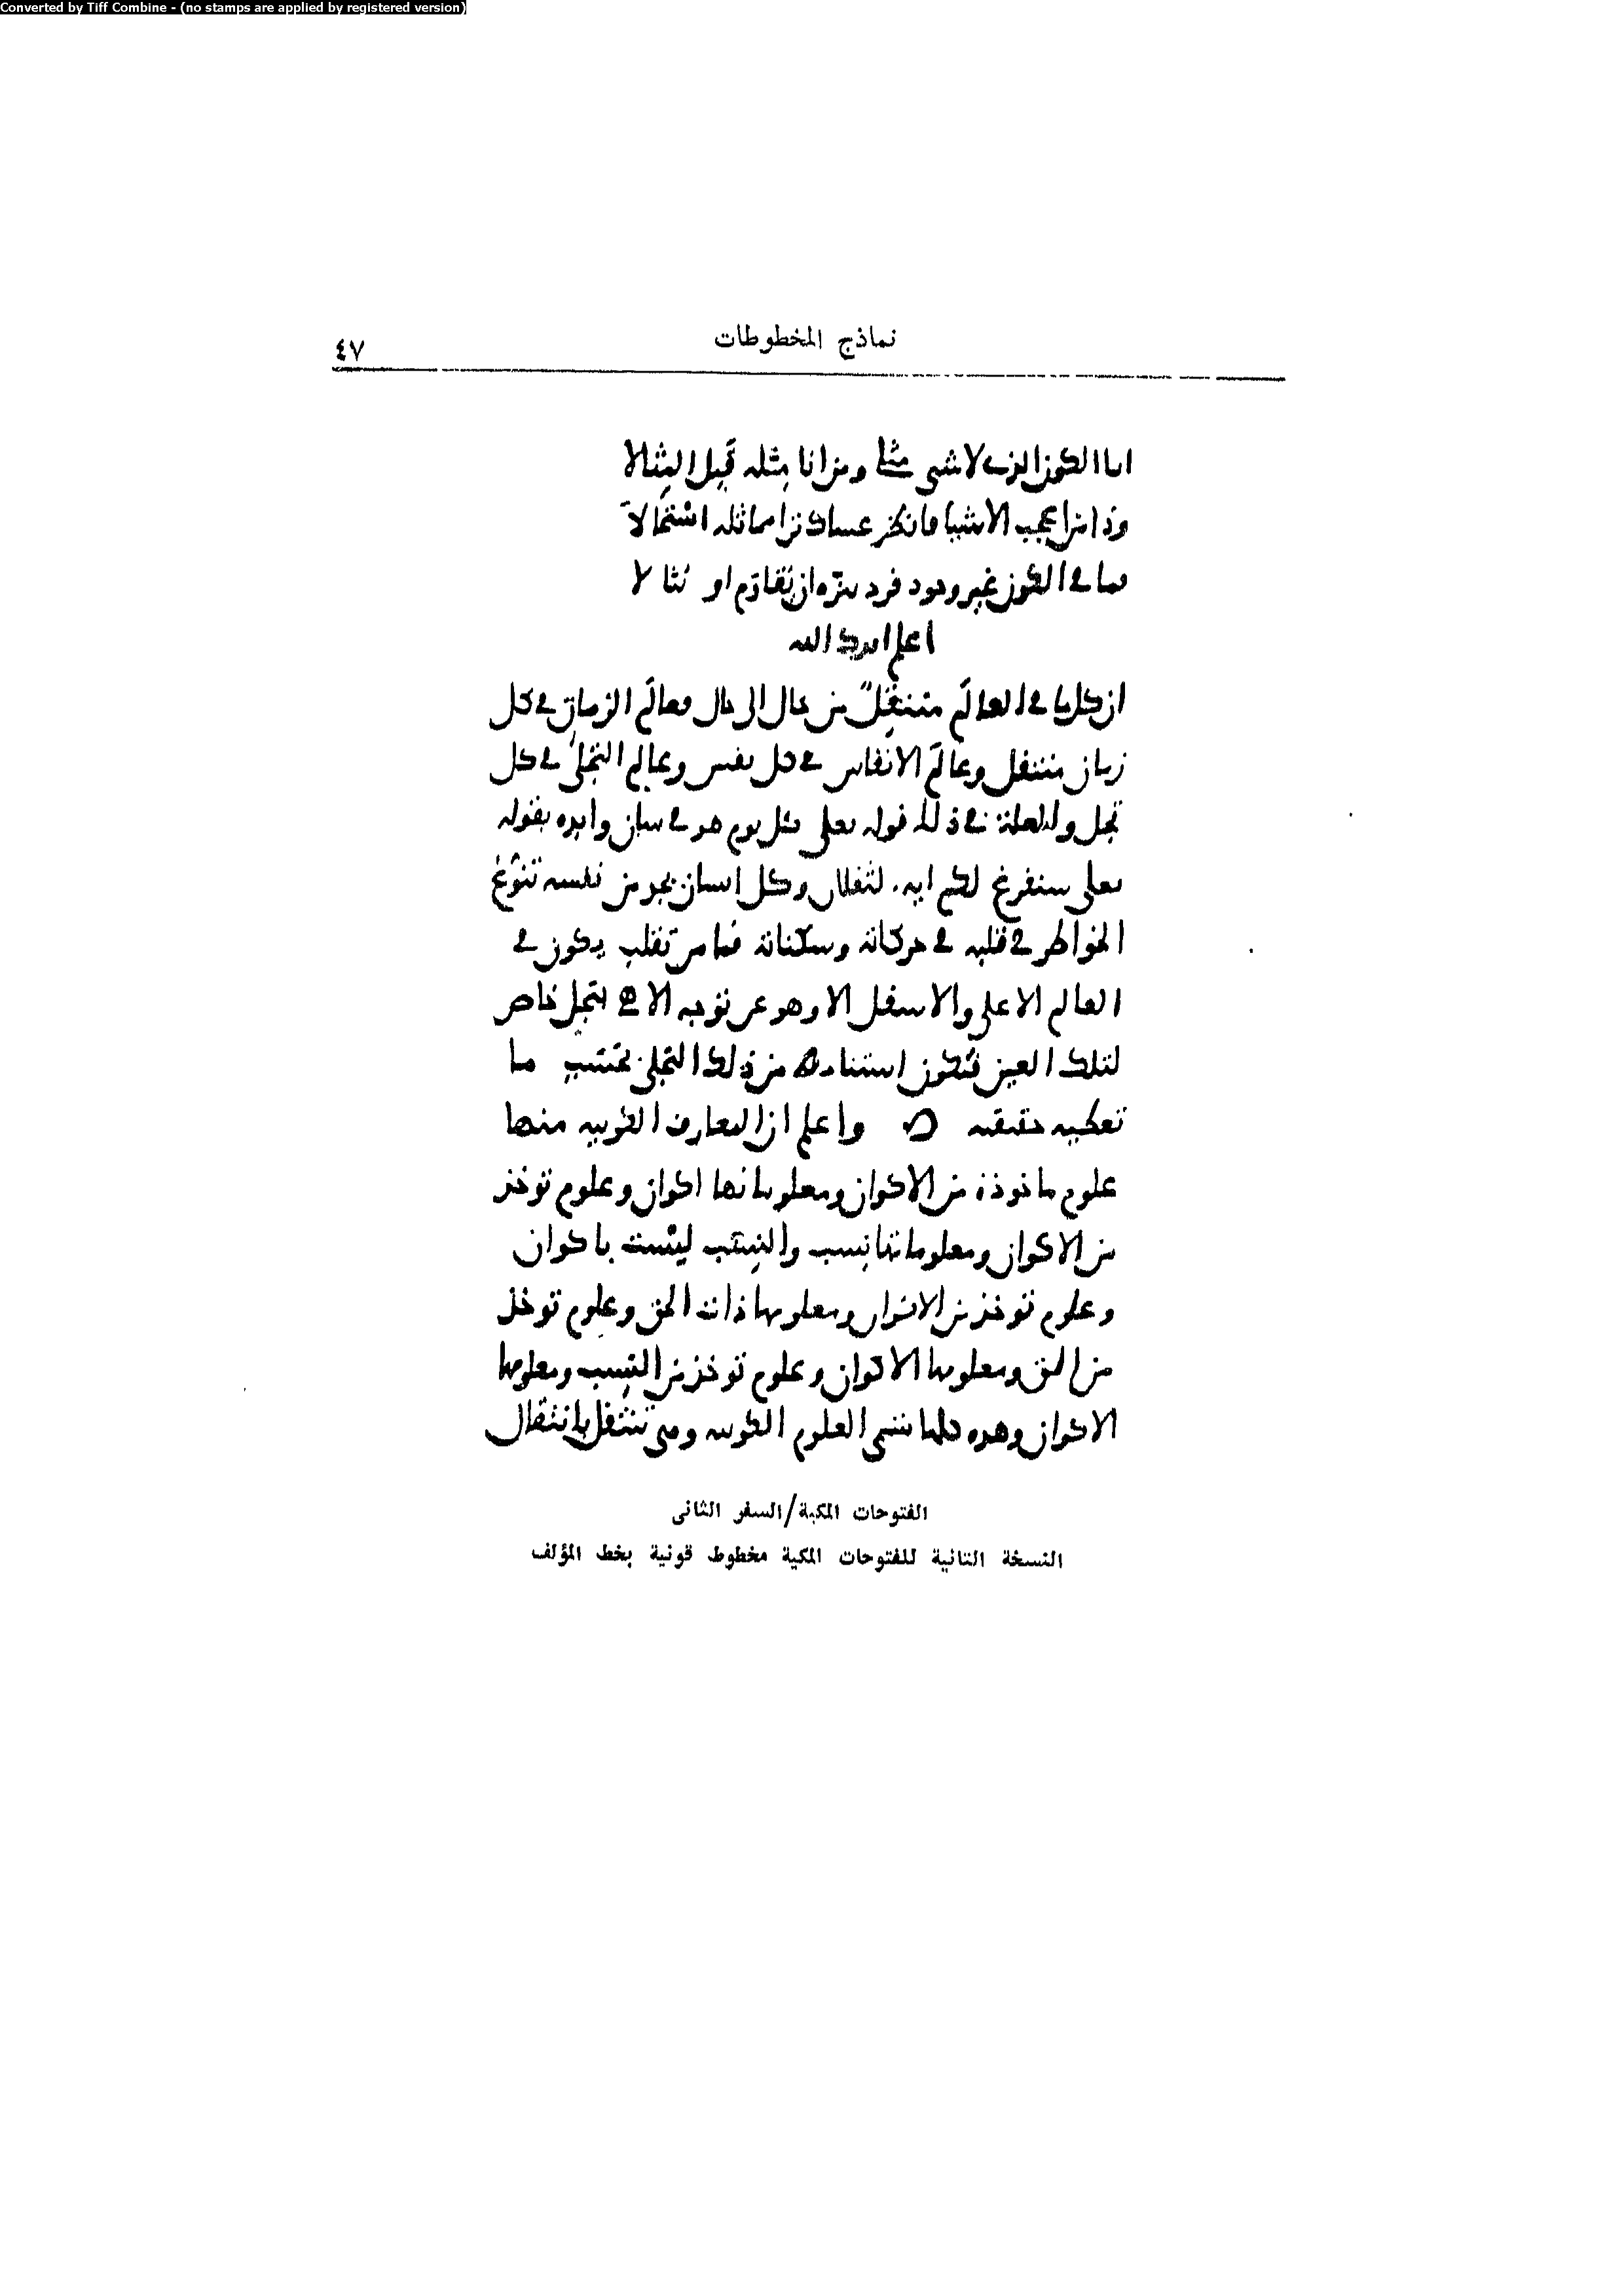 Converted by Tiff Combine - (no stamps are applied by registered version)
نماذج المخطوطات
٤٧
انا الكون الذى لا شى مثلى ومن انا مثله قبل المثالا
وذا من اعجب الاشيا فانظر عساك ترا مماثله استحالا
فما فى الكون غير وجود فرد تنزه ان يقاوم او ينالا
اعلم ايدك الله
ان كل ما فى العالم منتقل من حال الى حال فعالم الزمان فى كل
زمان منتقل وعالم الانفاس فى كل نفس وعالم التجلى فى كل
تجل والعلة فى ذلك قوله تعلى كل يوم هو فى شان وايده بقوله
تعلى سنفرغ لكم ايه الثقلان وكل انسان يجد من نفسه تنوع
الخواطر فى قلبه فى حركاته وسكناته فما من تقلب يكون فى
العالم الاعلى والاسفل الا وهو عن توجه الاهى بتجل خاص
لتلك العين فيكون استناده من ذلك التجلى بحسب ما
تعطيه حقيقته واعلم ان المعارف الكونيه منها
علوم ماخوذة من الاكوان ومعلوماتها اكوان وعلوم توخذ
من الاكوان ومعلوماتها نسب والنسب ليست باكوان
وعلوم توخذ من الاكوان ومعلومها ذات الحق وعلوم توخذ
من الحق ومعلومها الاكوان وعلوم توخذ من النسب ومعلومها
الاكوان وهذه كلها تسمى العلوم الكونيه وهى تنتقل بانتقال
الفتوحات المكية/السفر الثانى
النسخة الثانية للفتوحات المكية مخطوط قونية بخط المؤلف